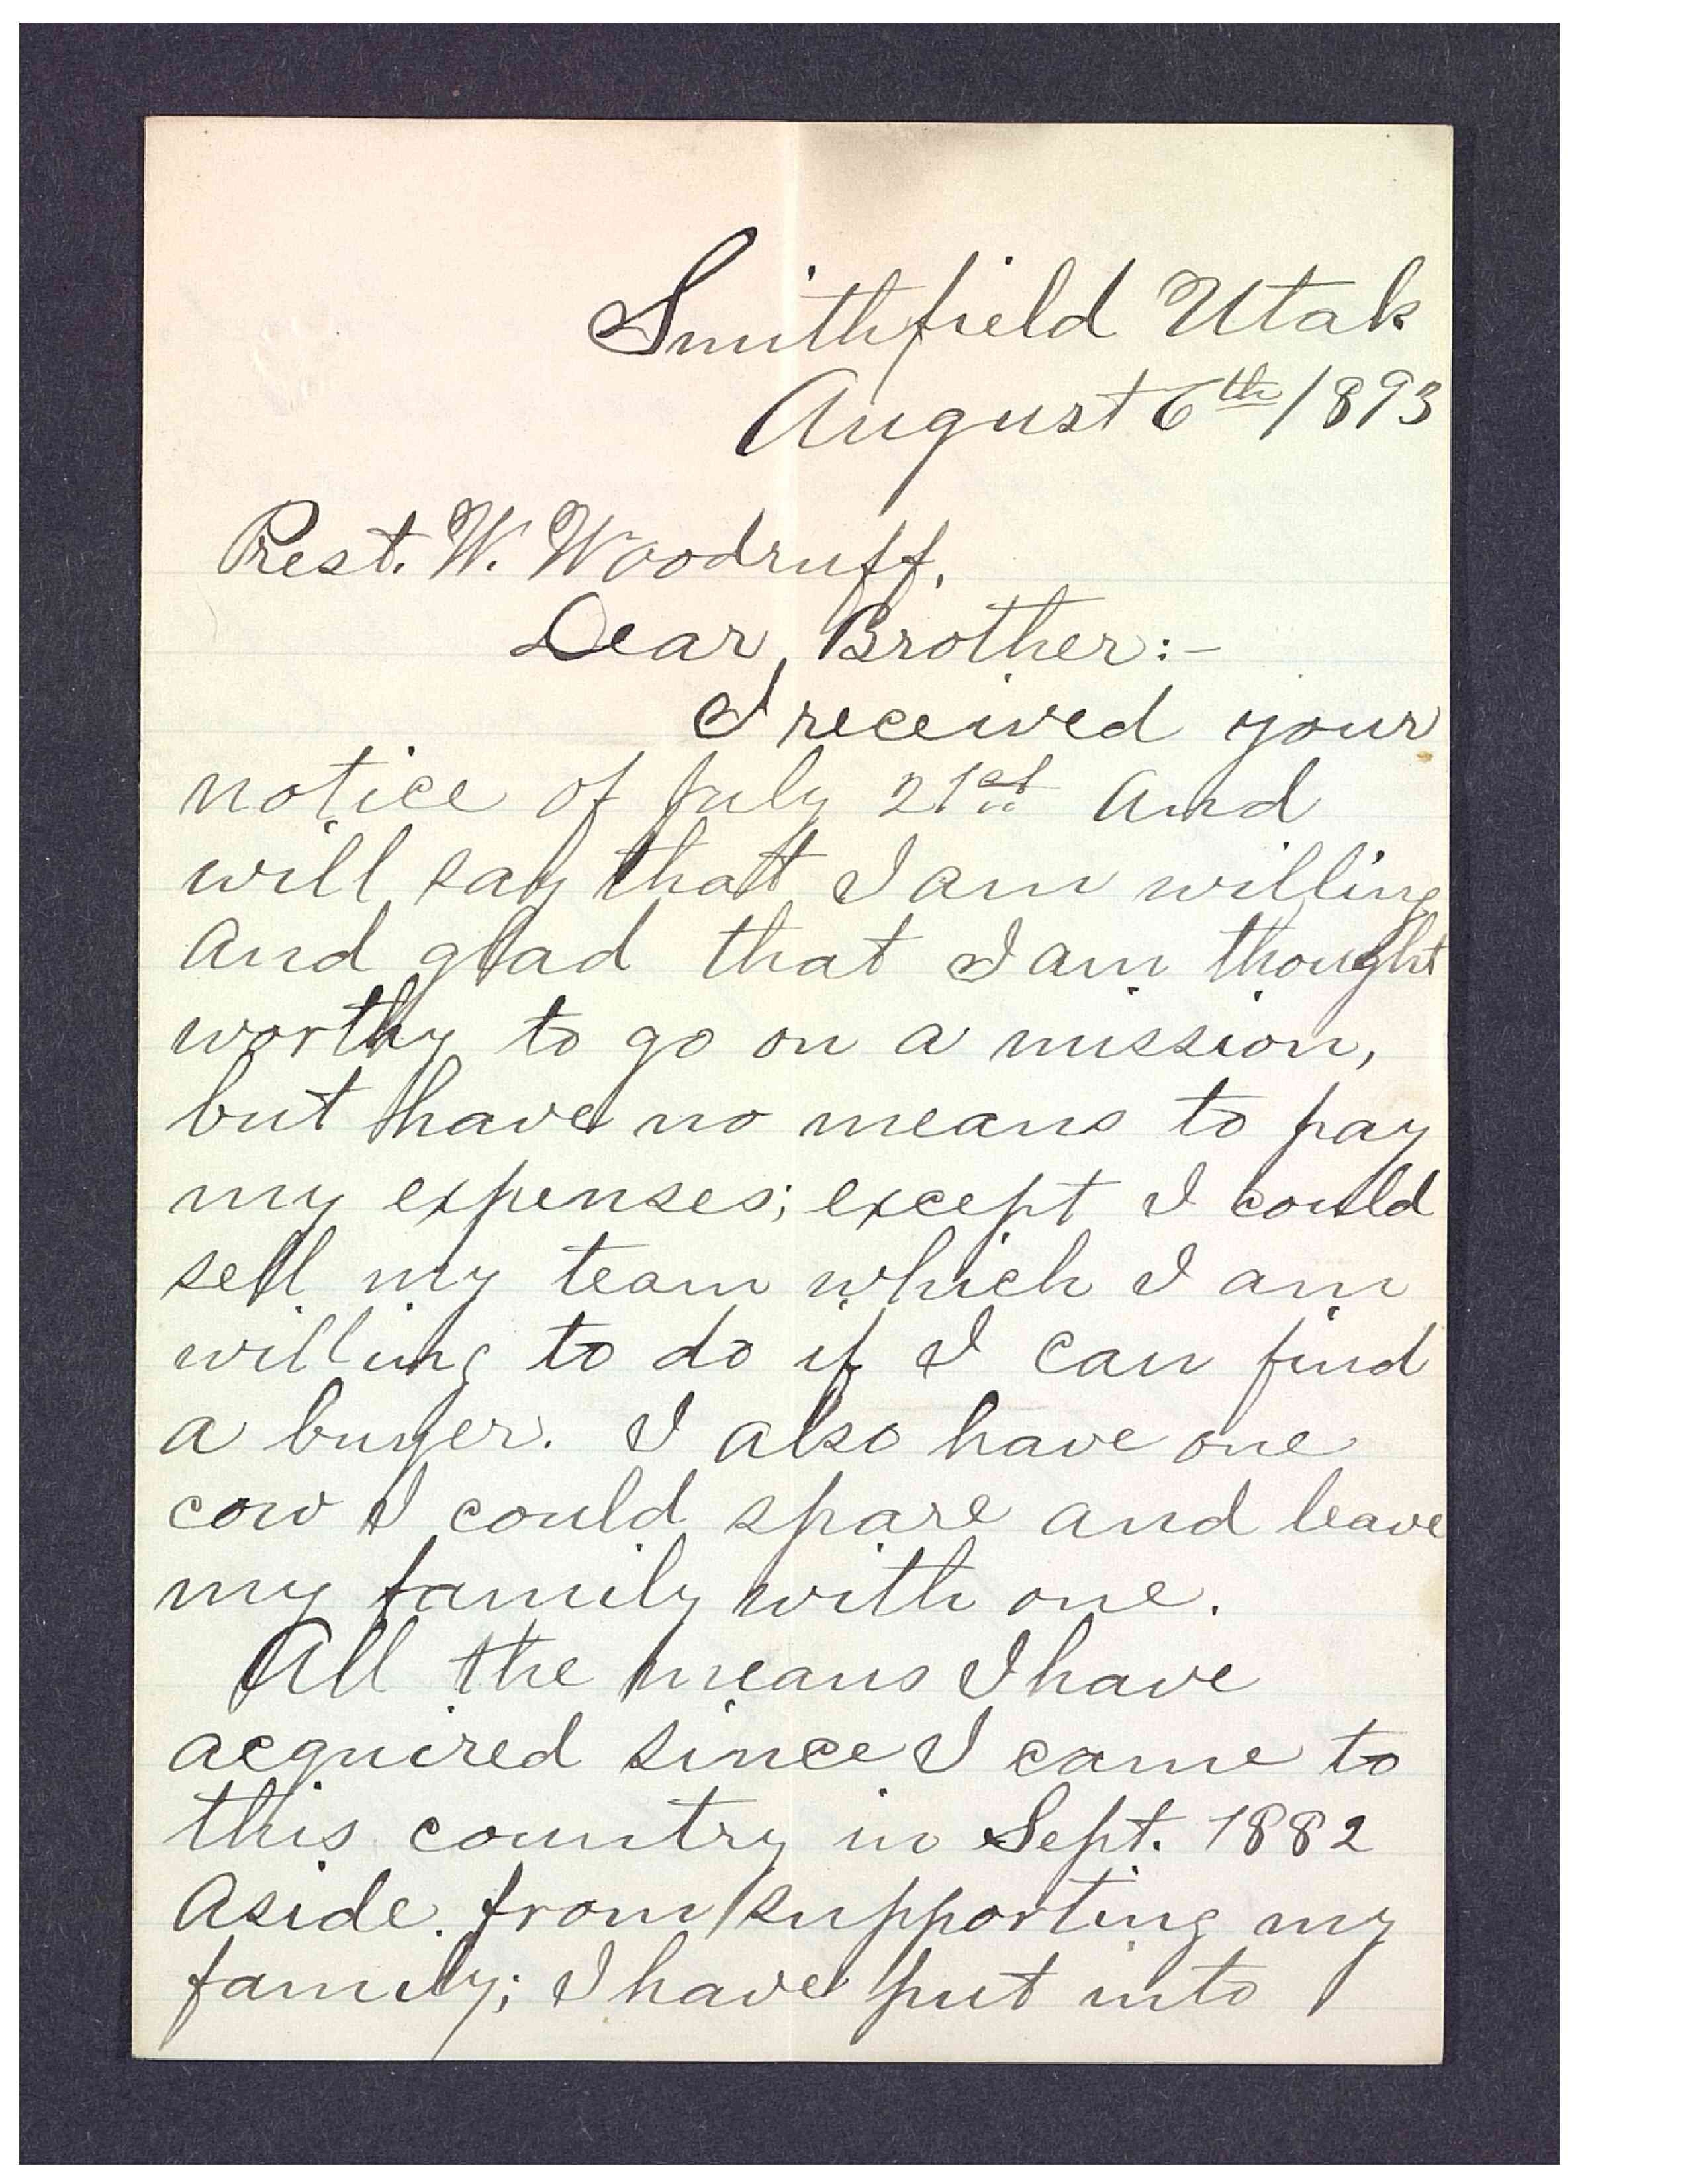 Smithfield Utah
August 6th 1893
Prest. W. Woodruff,
Dear Brother:-
I received your
notice of July 21st And
will say that I am willing
And glad that I am thought
worthy to go on a mission,
but have no means to pay
my expenses; except I could
sell my team which I am
willing to do if I can find
a buyer. I also have one
cow I could spare and leave
my family with one.
All the means I have
acquired since I came to
this country in Sept. 1882
Aside from supporting my
family; I have put into